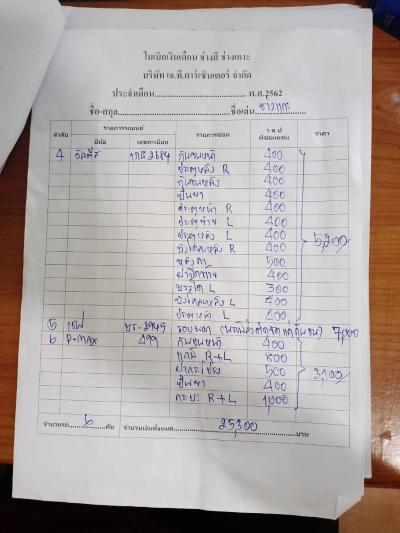 ใบเบิกเงินเดือน ช่างสี ช่างเคาะ
บริษัท เจ.ที.คาร์เซ็นเตอร์ จำกัด
ประจำเดือน.................................... พ.ศ.2562
ชื่อ-สกุล.................................... ชื่อเล่น....................
ลำดับ รายการรถยนต์ รายการซ่อม ราคา
ยี่ห้อ เลขทะเบียน
4 2684 กันชนหน้า 400
ประตูหลัง R 400
กันชนหลัง 400
400
ประตูหน้า R 400
L 400
ประตูหลัง L 400
บังโคลนหลัง R 400
หลังคา 500
ฝาปิดท้าย 400
L 300
บังโคลนหลัง L 400
ประตูหน้า L 400
5,200
5 2945 รอบคัน 7,000
6 D-MAX 499 กันชนหน้า 400
แก้ม R+L 800
ฝากระโปรง 500
400
กระบะ R+L 1,000
3,100
จำนวนรถ 6 คัน จำนวนเงินทั้งหมด 25,300 บาท